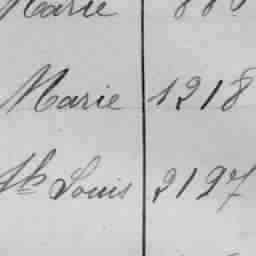 Marie
Marie 1218
Sh Louis 2197